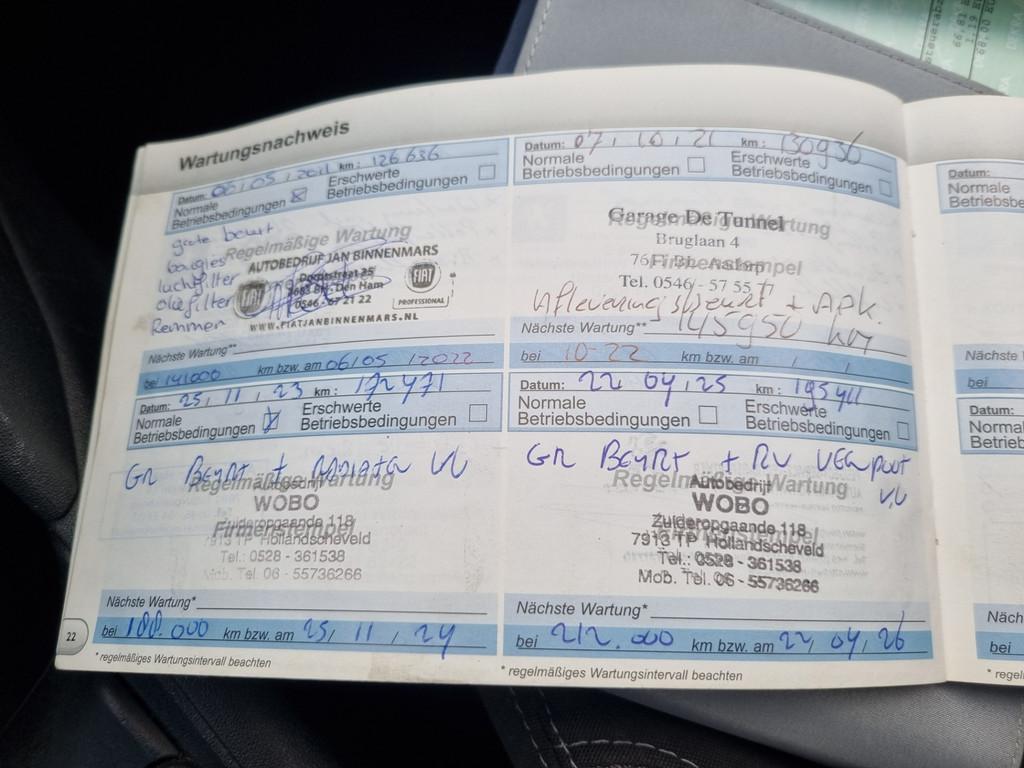 Wartungsnachweis
Datum: 06/05/2021 km: 126.636
Normale Betriebsbedingungen ☒
Erschwerte Betriebsbedingungen ☐
grote beurt
bougies
luchtfilter
oliefilter
Remmen
Regelmäßige Wartung
AUTOBEDRIJF JAN BINNENMARS
Dorpsstraat 25
Den Ham
0546 - 67 21 22
FIAT
FIAT
PROFESSIONAL
WWW.FIATJANBINNENMARS.NL
Nächste Wartung**
bei 141000 km bzw. am 06/05/2022
Datum: 07/10/21 km: 130936
Normale Betriebsbedingungen ☐
Erschwerte Betriebsbedingungen ☐
Regelmäßige Wartung
Garage De Tunnel
Bruglaan 4
Firmenstempel
Tel. 0546 - 57 55
Afleveringsbeurt + APK.
Nächste Wartung** 145950 km
bei 10-22 km bzw. am / /
Datum: 25/11/23 km: 172471
Normale Betriebsbedingungen ☒
Erschwerte Betriebsbedingungen ☐
GR BEURT + VV
Regelmäßige Wartung
Autobedrijf
WOBO
Firmenstempel
Zuideropgaande 118
7913 TP Hollandscheveld
Tel.: 0528 - 361538
Mob. Tel. 06 - 55736266
Nächste Wartung*
bei 188.000 km bzw. am 25/11/24
22
* regelmäßiges Wartungsintervall beachten
Datum: 22/04/25 km: 195411
Normale Betriebsbedingungen ☐
Erschwerte Betriebsbedingungen ☐
GR BEURT + RV
VV
Regelmäßige Wartung
Autobedrijf
WOBO
Firmenstempel
Zuideropgaande 118
7913 TP Hollandscheveld
Tel.: 0528 - 361538
Mob. Tel. 06 - 55736266
Nächste Wartung*
bei 212.000 km bzw. am 22/04/26
* regelmäßiges Wartungsintervall beachten
Datum:
Nächste
bei
Datum:
bei
66,81
1,19
68,00